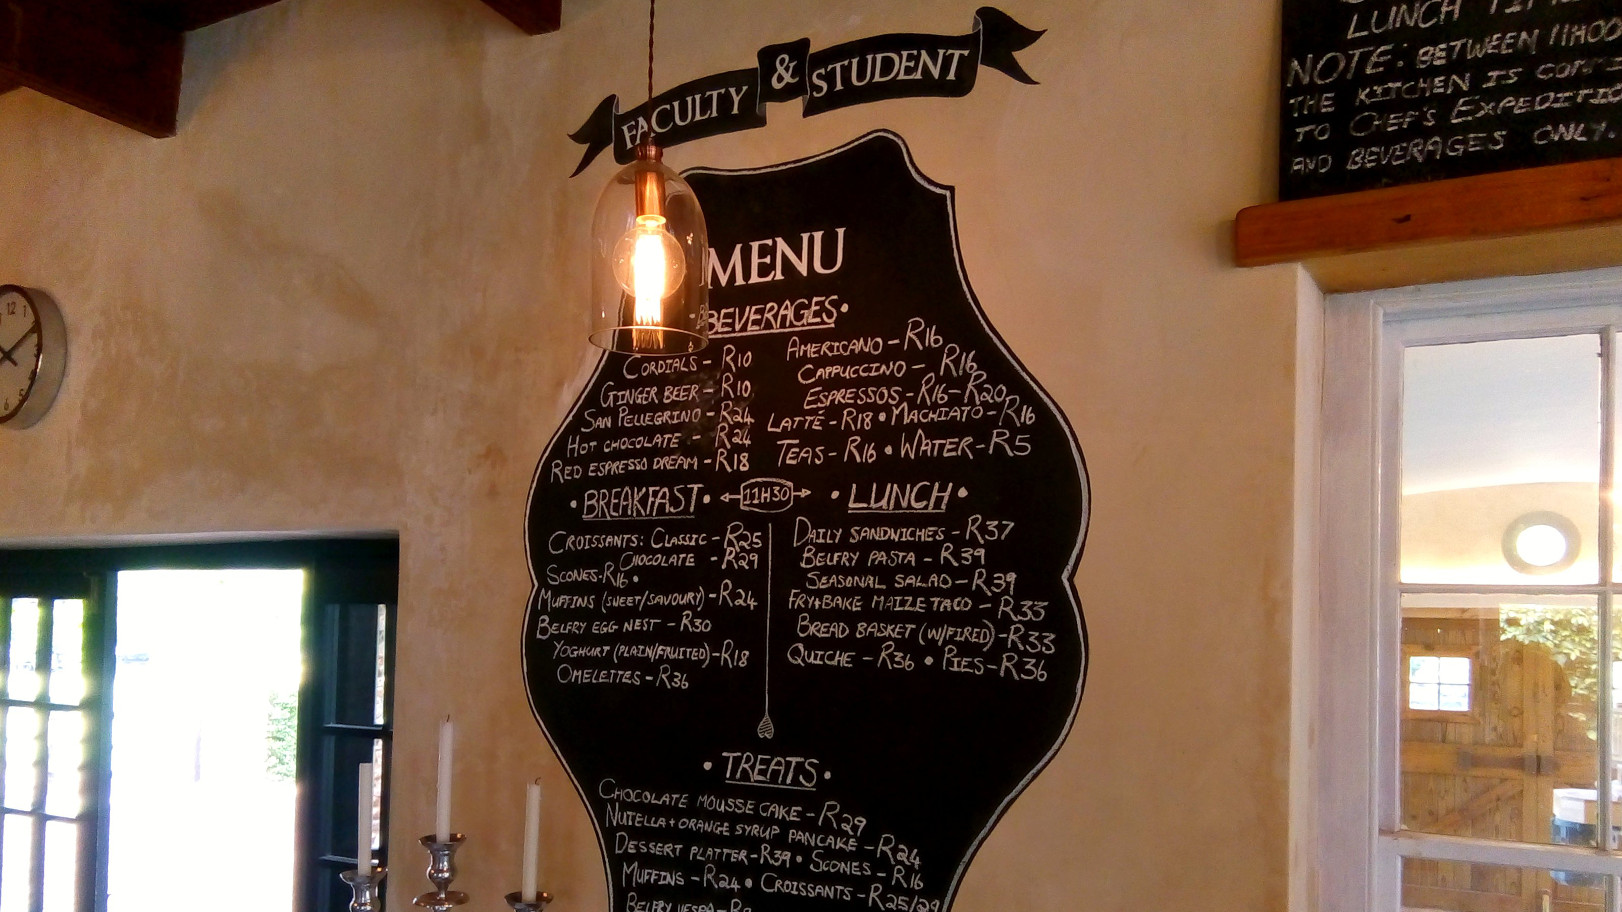 FACULTY & STUDENT
MENU
• BEVERAGES •
CORDIALS - R10
GINGER BEER - R10
SAN PELLEGRINO - R24
HOT CHOCOLATE - R24
RED ESPRESSO DREAM - R18
AMERICANO - R16
CAPPUCCINO - R16
ESPRESSOS - R16-R20
LATTÉ - R18 • MACHIATO - R16
TEAS - R16 • WATER - R5
• BREAKFAST • ← 11H30 → • LUNCH •
CROISSANTS: CLASSIC - R25
CHOCOLATE - R29
SCONES - R16 •
MUFFINS (SWEET/SAVOURY) - R24
BELFRY EGG NEST - R30
YOGHURT (PLAIN/FRUITED) - R18
OMELETTES - R36
DAILY SANDWICHES - R37
BELFRY PASTA - R39
SEASONAL SALAD - R39
FRY+BAKE MAIZE TACO - R33
BREAD BASKET (W/FIRED) - R33
QUICHE - R36 • PIES - R36
• TREATS •
CHOCOLATE MOUSSE CAKE - R29
NUTELLA + ORANGE SYRUP PANCAKE - R24
DESSERT PLATTER - R39 • SCONES - R16
MUFFINS - R24 • CROISSANTS - R25/29
BELFRY VESPA
LUNCH
NOTE: BETWEEN 11H00
THE KITCHEN IS
TO CHEF'S
AND BEVERAGES ONLY.
12
1
5
6